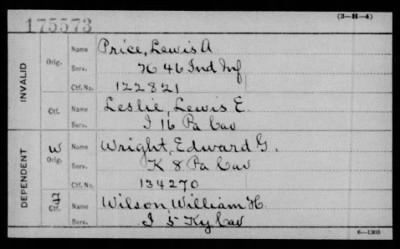 175573
(3-H-4)
INVALID
Orig.
Name Price, Lewis A
Serv. H 46 Ind Inf
Ctf. No. 122821
Ctf.
Name Leslie, Lewis E.
Serv. I 16 Pa Cav
DEPENDENT
W
Orig.
Name Wright, Edward G.
Serv. K 8 Pa Cav
Ctf. No. 134270
Ctf.
Name Wilson William H
Serv. I 5 Ky Cav